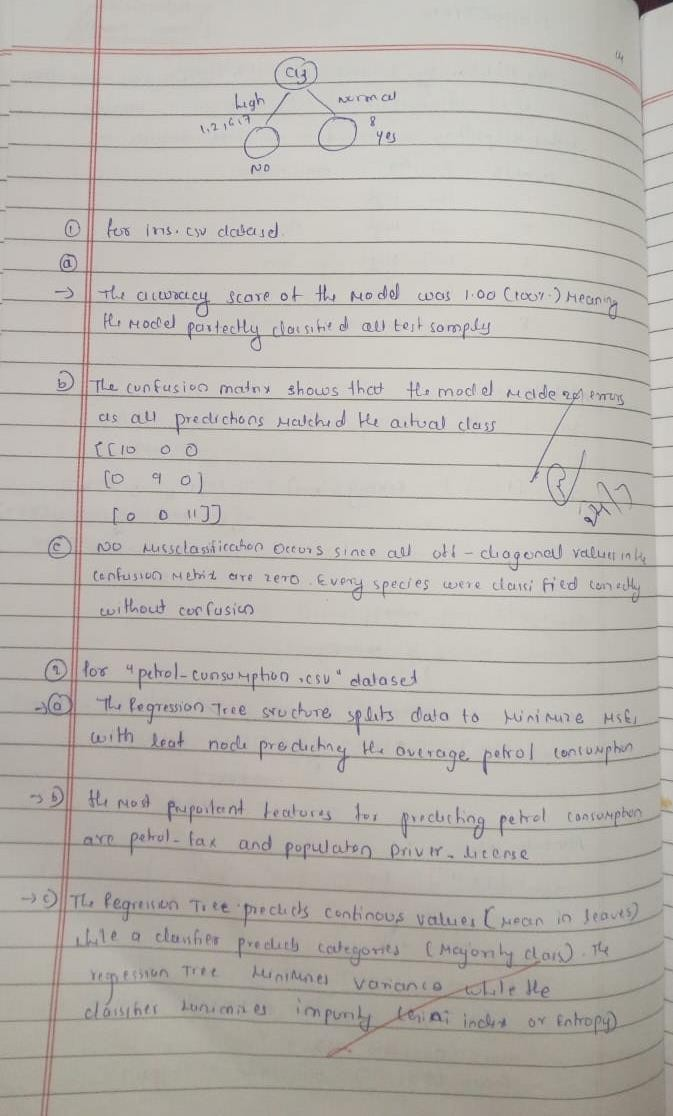 a3
high normal
1,2,6,7 8
yes
NO
① for iris.csv dataset.
ⓐ
→ The accuracy score of the Model was 1.00 (100%.) Meaning
the Model partectly classified all test samply
b) The confusion matrix shows that the model made zero errors
as all predictions matched the actual class
[[10 0 0
[0 9 0]
[0 0 11]]
ⓒ NO Missclassification occurs since all off-diagonal values in the
confusion Metrix are zero. Every species were classified correctly
without confusion
② for "petrol-consumption.csv" dataset
→ⓐ The Regression Tree structure splits data to Minimize MSE,
with leaf node predicting the average petrol consumption
→ b) the most important features for predicting petrol consumption
are petrol-tax and population Driver-license
→ c) The Regression Tree predicts continous values (mean in leaves)
while a classifier predicts categories (Majority class). The
regression Tree Minimizes variance while the
classifier minimizes impurity (Gini index or Entropy)